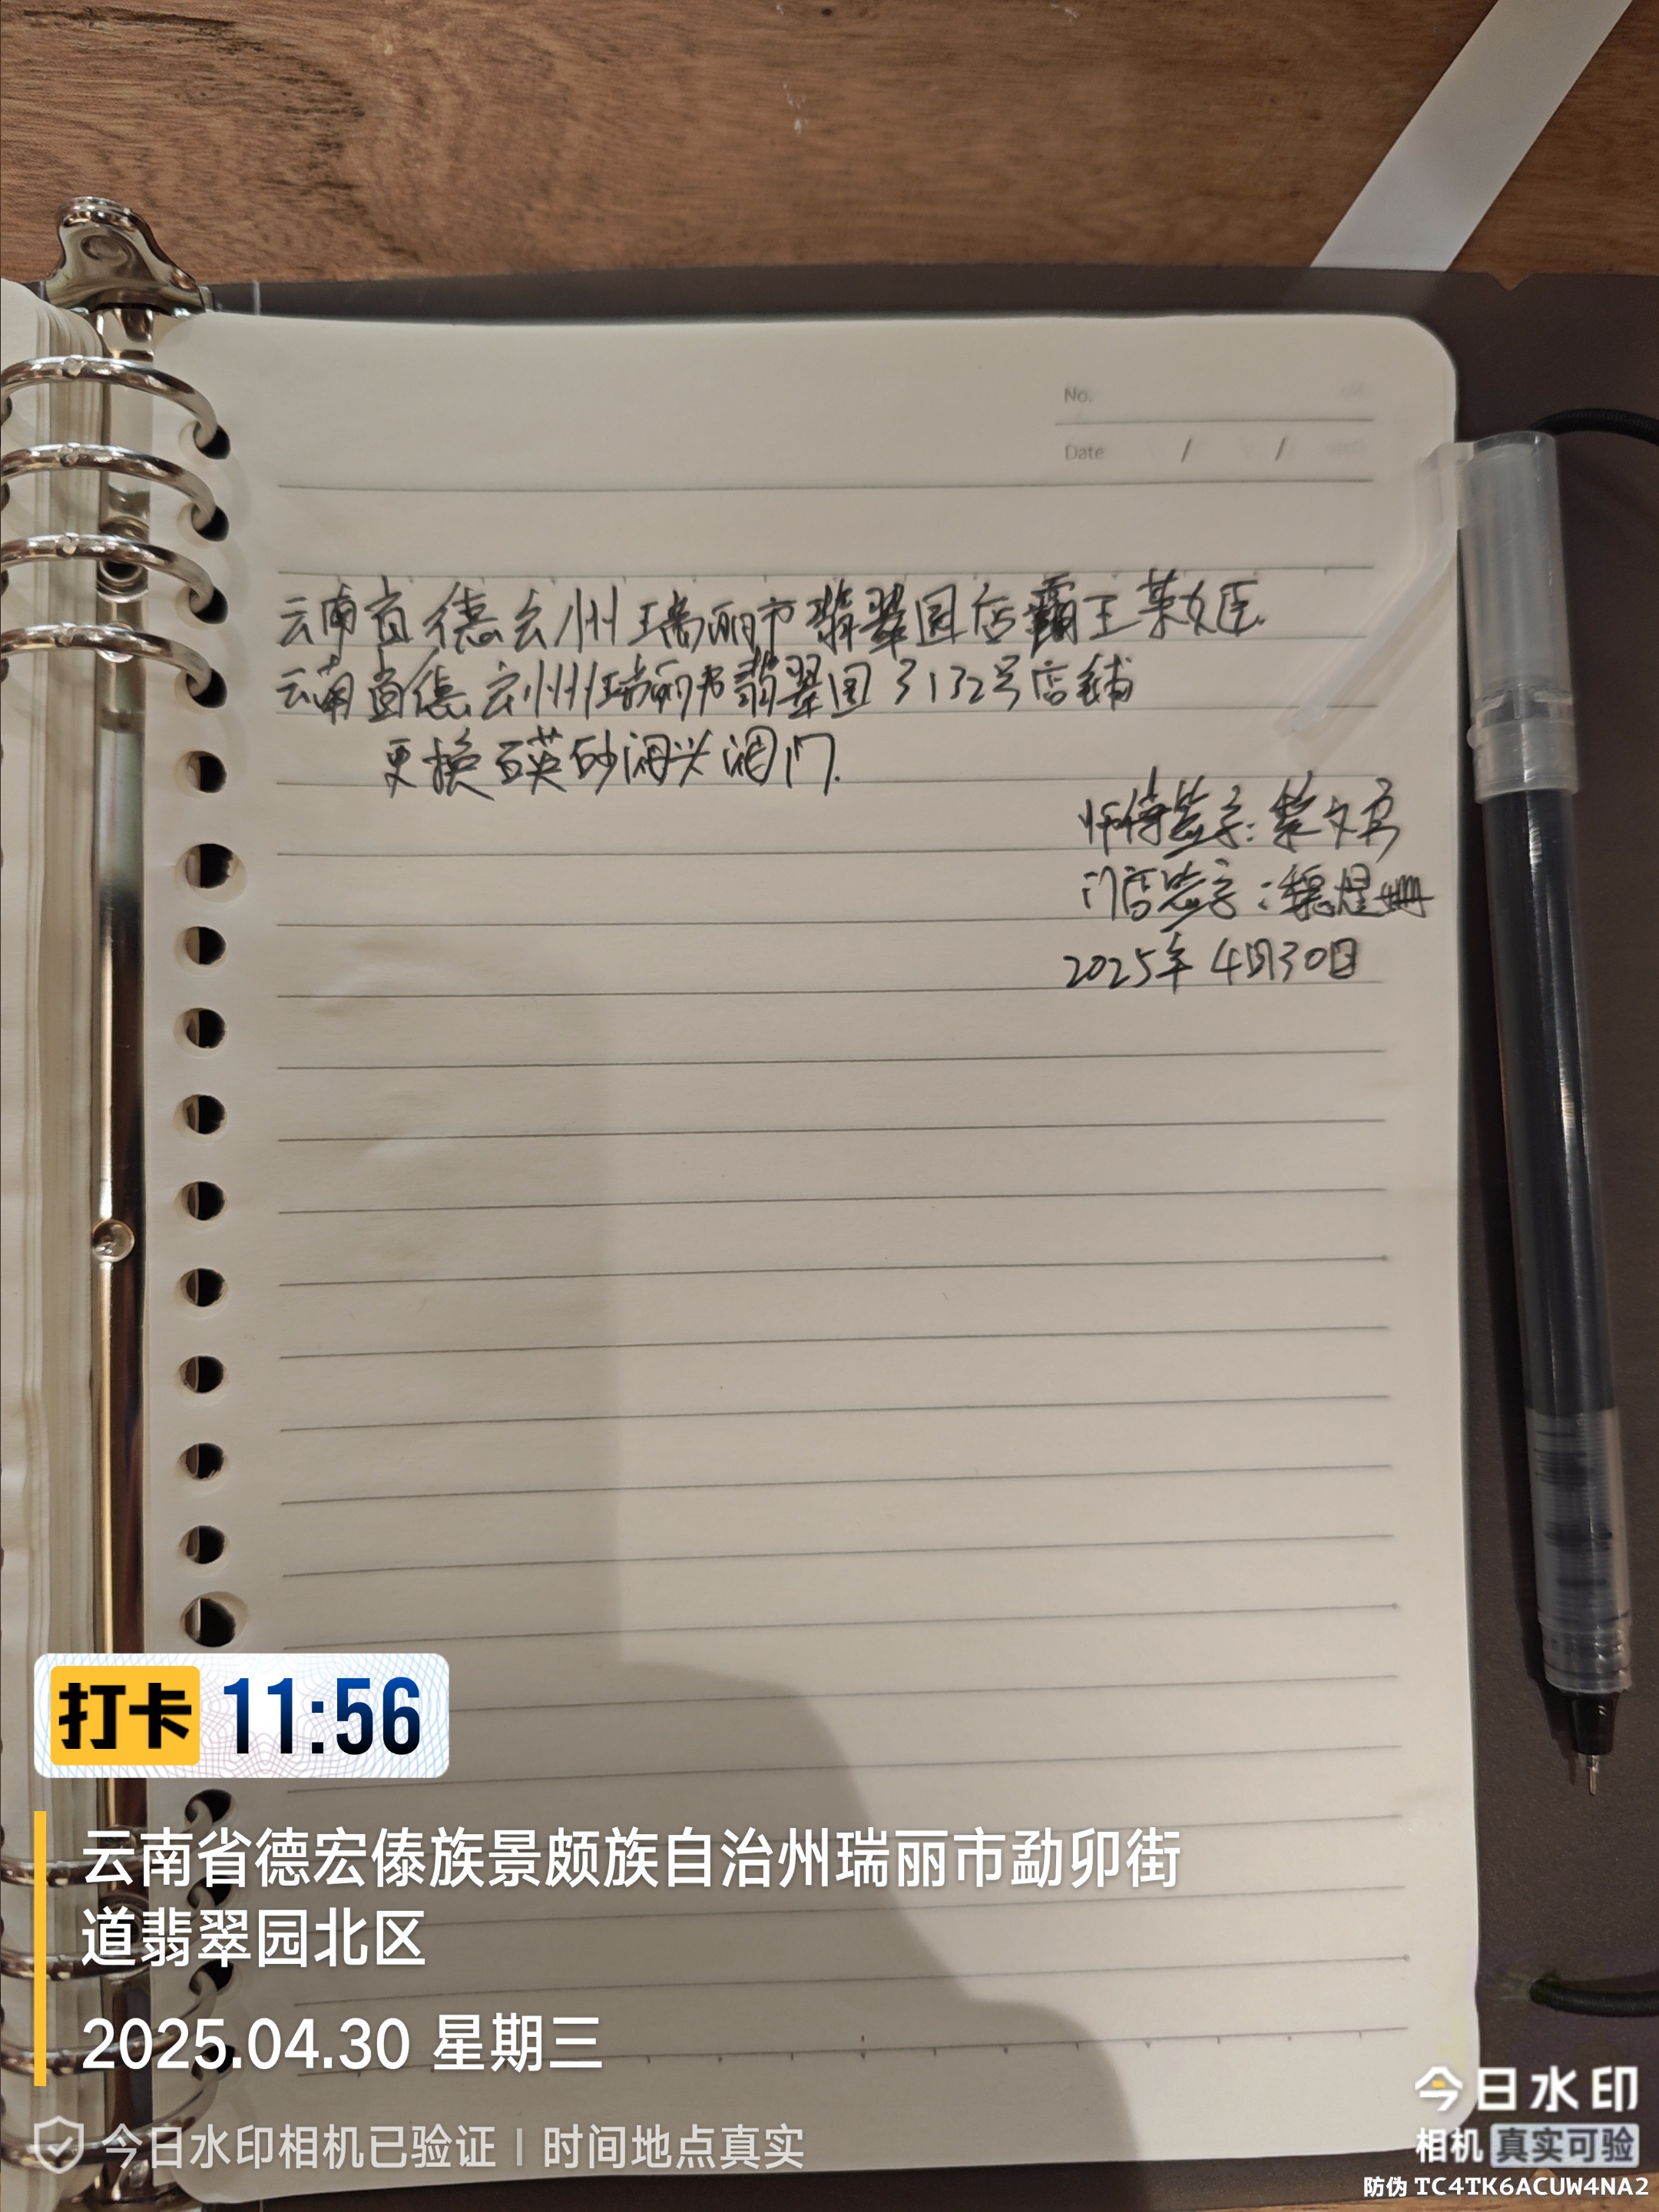 No.
Date / /
云南省德宏州瑞丽市翡翠园店霸王茶姬
云南省德宏州瑞丽市翡翠园3132号店铺
更换石英砂
师傅签字:
门店签字:
2025年4月30日
打卡 11:56
云南省德宏傣族景颇族自治州瑞丽市勐卯街
道翡翠园北区
2025.04.30 星期三
今日水印相机已验证 | 时间地点真实
今日水印
相机 真实可验
防伪 TC4TK6ACUW4NA2